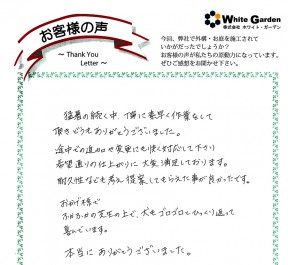 お客様の声
～ Thank You
Letter ～
White Garden
株式会社 ホワイト・ガーデン
今回、弊社で外構・お庭を施工されて
いかがだったでしょうか？
お客様の声が私たちの原動力になっています。
ぜひご感想をお聞かせ下さい。
猛暑の続く中、丁寧に素早く作業をして
頂きどうもありがとうございました。
途中での追加や変更にも快く対応して下さり
希望通りの仕上がりに大変満足しております。
耐久性なども考え提案してもらえた事が良かったです。
おかげ様で
ホカホカの芝生の上で、犬もゴロゴロとひっくり返って
喜んでいます。
本当にありがとうございました。